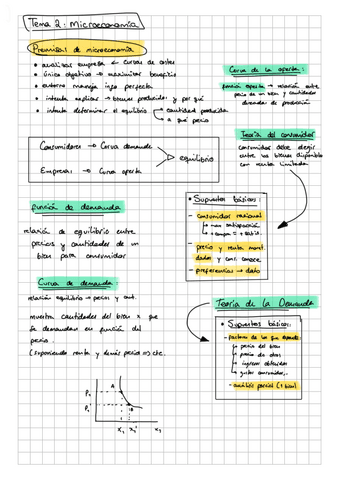 Tema 2: Microeconomía
Premisas de microeconomía
• analizar empresa ← curvas de costes
• único objetivo → maximizar beneficio
• entorno maneja info perfecta
• intenta explicar → bienes producidos y por qué
• intenta determinar el equilibrio → cantidad producida
→ a qué precio
Curva de la oferta:
función oferta → relación entre
precio de un bien y cantidades
de producción
Consumidores → Curva demanda
Empresas → Curva oferta
equilibrio
Teoría del consumidor
consumidor debe elegir
entre los bienes disponibles
con renta limitada
función de demanda
relación de equilibrio entre
precios y cantidades de un
bien para consumidor
• Supuestos básicos:
- consumidor racional
→ max satisfacción
→ + compra = + satisf.
- precio y renta mont.
dados y cons. conoce
- preferencias → dato
Curva de demanda:
relación equilibrio → precios y cant.
muestra cantidades del bien x que
se demandan en función del
precio.
(suponiendo renta y demás precios) cte.
Teoría de la Demanda
• Supuestos básicos:
- factores de los que depende:
→ precio del bien
→ precio de otros
→ ingresos obtenidos
→ gustos consumidor,..
- análisis parcial (1 bien)
P₀
A
P₁
B
X₁ X₁' X₁